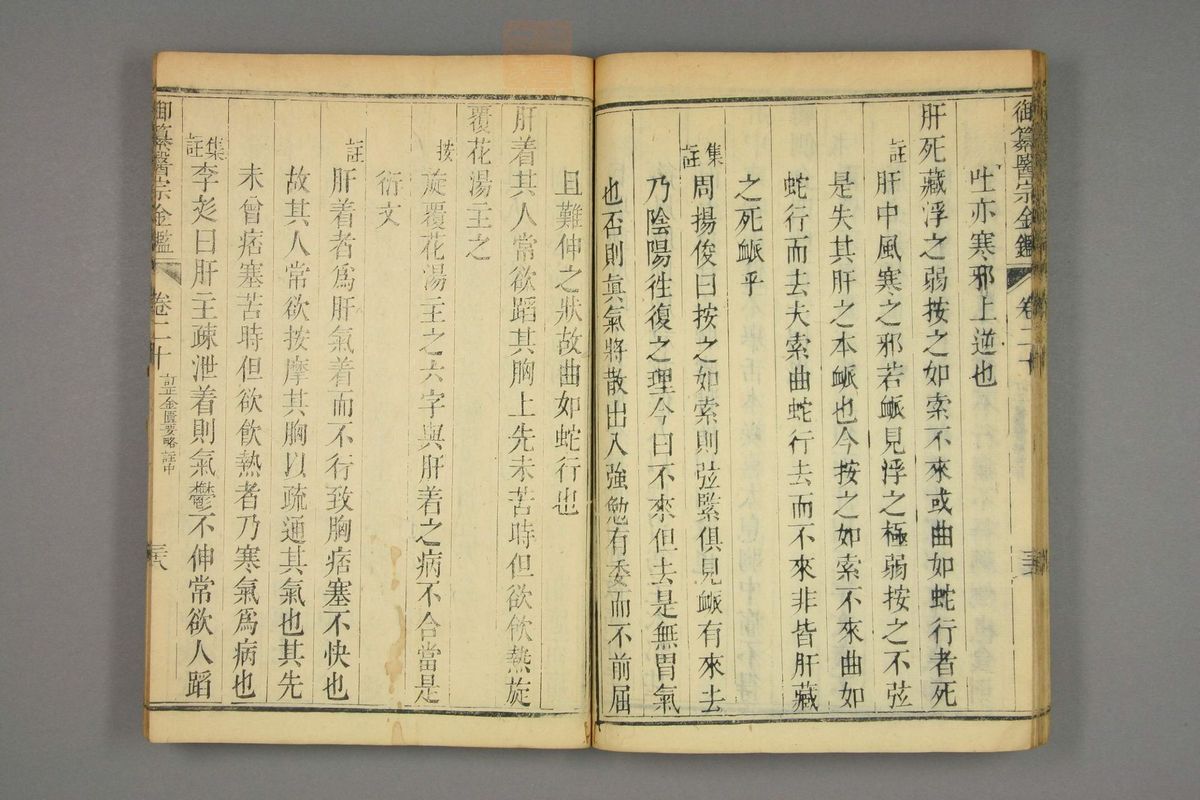 御纂醫宗金鑑 卷二十
吐亦寒邪上逆也
肝死藏浮之弱按之如索不來或曲如蛇行者死
註肝中風寒之邪若脈見浮之極弱按之不弦
是失其肝之本脈也今按之如索不來曲如
蛇行而去夫索曲蛇行去而不來非皆肝藏
之死脈乎
集註周揚俊曰按之如索則弦緊俱見脈有來去
乃陰陽徃復之理今曰不來但去是無胃氣
也否則真氣將散出入強勉有委而不前屈
且難伸之狀故曲如蛇行也
肝着其人常欲蹈其胸上先未苦時但欲飲熱旋
覆花湯主之
按旋覆花湯主之六字與肝着之病不合當是
衍文
註肝着者爲肝氣着而不行致胸痞塞不快也
故其人常欲按摩其胸以疏通其氣也其先
未曾痞塞苦時但欲飲熱者乃寒氣爲病也
集註李彣曰肝主疎泄着則氣鬱不伸常欲人蹈
御纂醫宗金鑑 卷二十 訂正金匱要略註中 三六